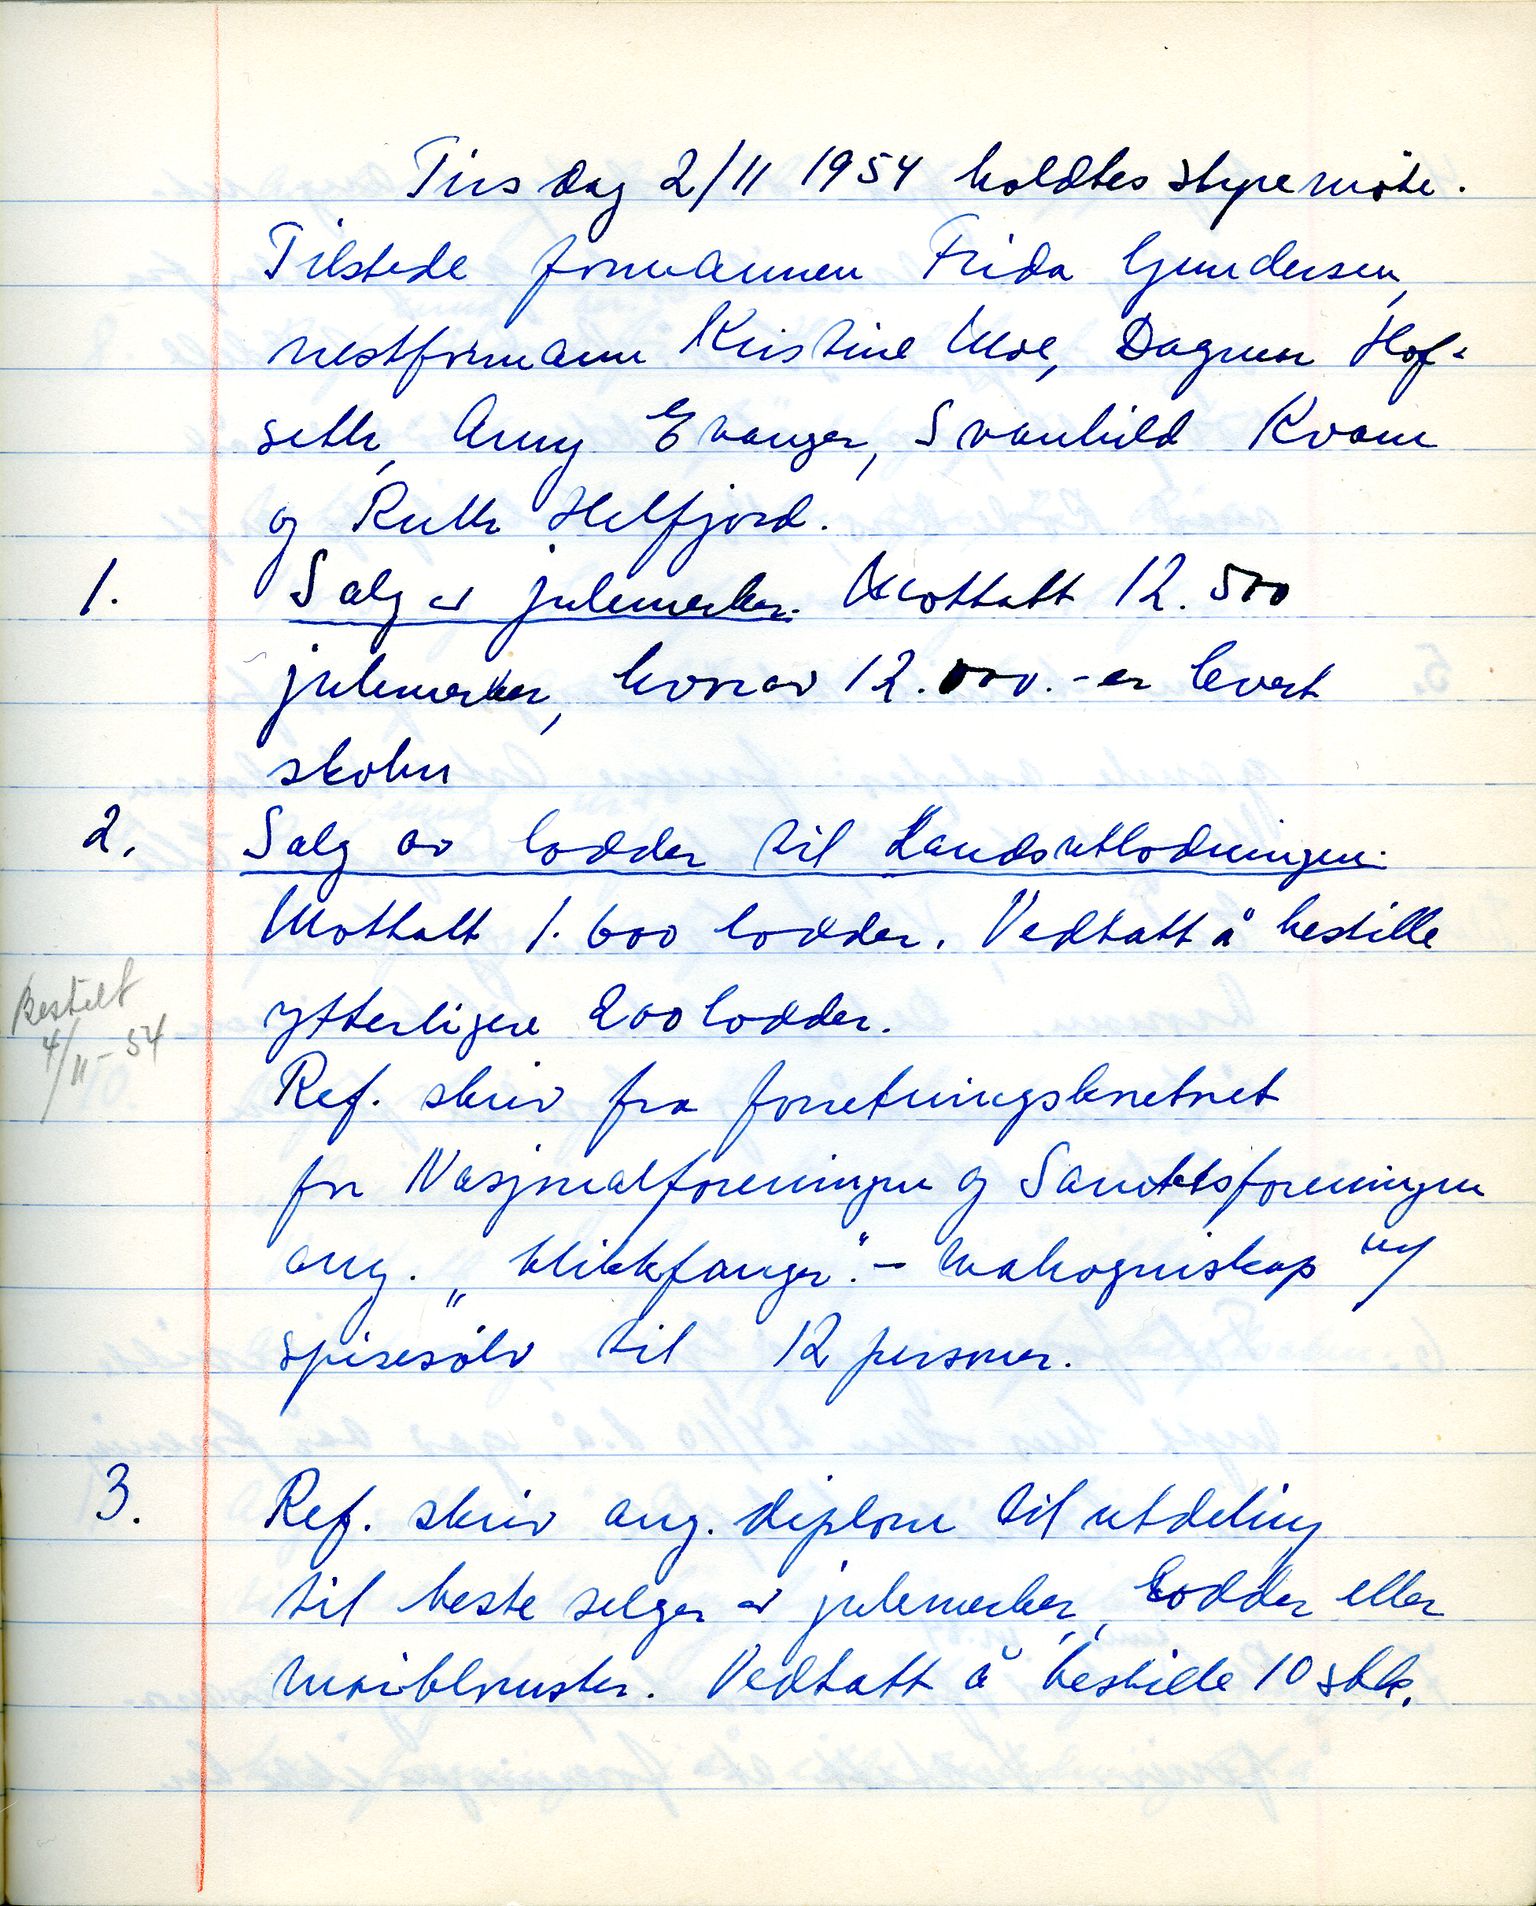 Tirsdag 2/11 1954 holdtes styremøte.
Tilstede formannen Frida Gundersen,
nestformann Kristine Moe, Dagmar Hof-
seth, Anny Evanger, Svanhild Kvam
og Ruth Helfjord.
1. Salg av julemerker. Mottatt 12.500
julemerker, hvorav 12.000.- er levert
skolen
2. Salg av lodder til Landsutlodningen.
Mottatt 1.600 lodder. Vedtatt å bestille
ytterligere 200 lodder.
Bestilt
4/11-54
Ref. skriv fra forretningskontoret
for Nasjonalforeningen og Sanitetsforeningen
ang. „blikkfanger".- mahogniskap m/
spisesølv til 12 personer.
3. Ref. skriv ang. diplom til utdeling
til beste selger av julemerker, lodder eller
maiblomster. Vedtatt å bestille 10 stk.